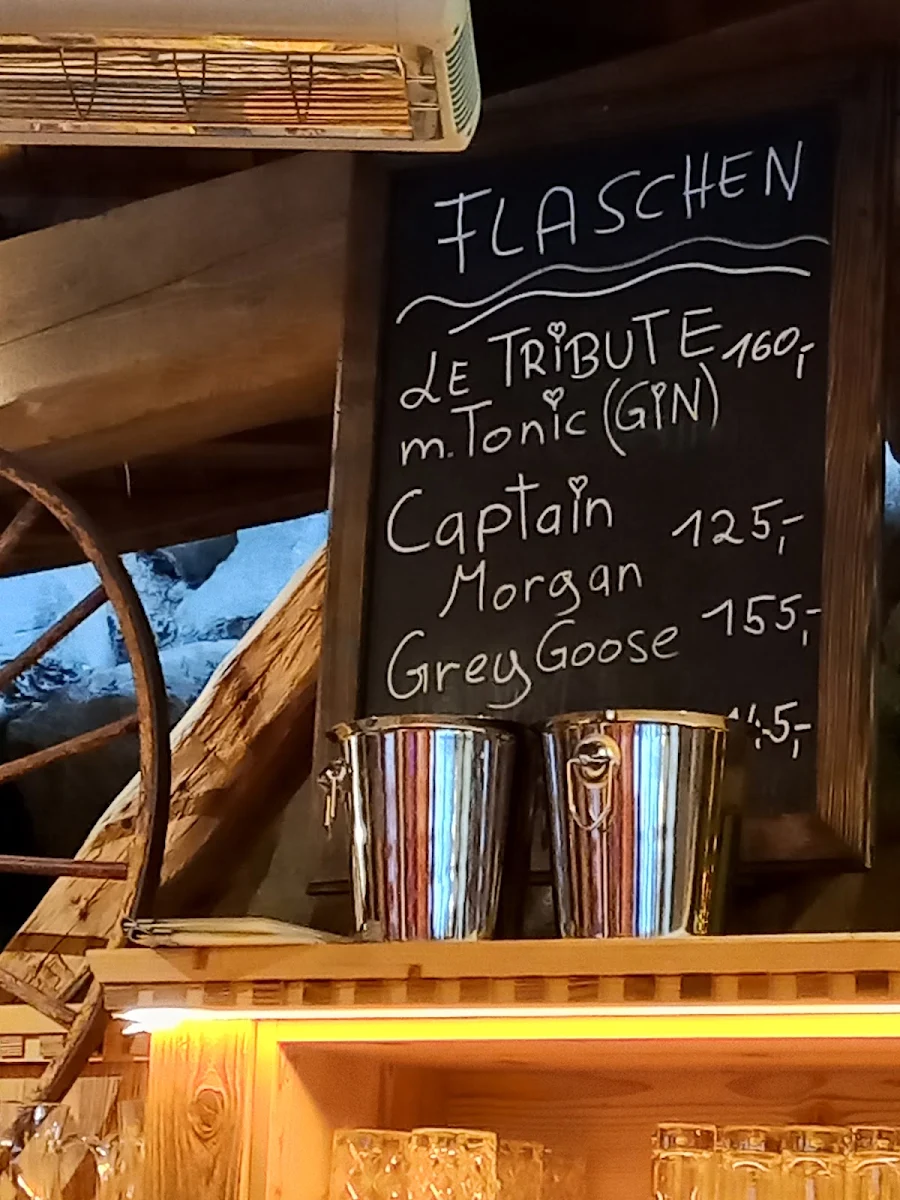 FLASCHEN
LE TRIBUTE 160,-
m. Tonic (GIN)
Captain
Morgan 125,-
Grey Goose 155,-